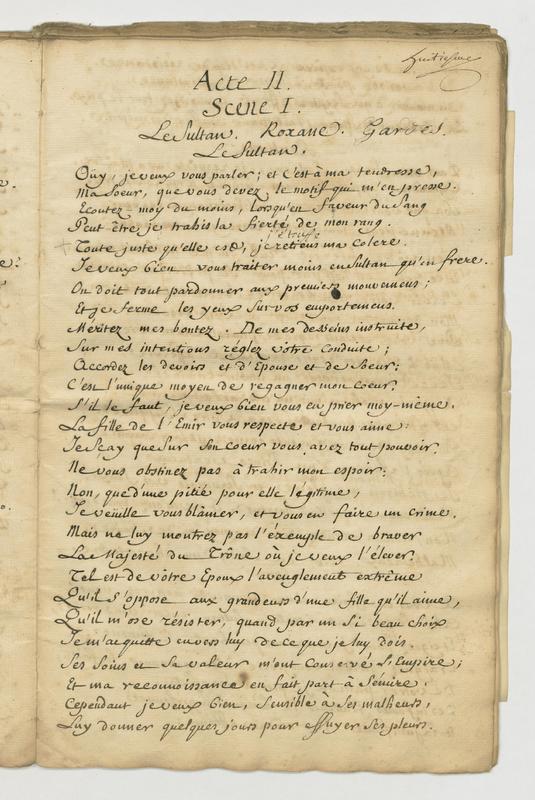 huitiesme
Acte II.
Scene I.
Le Sultan. Roxane. Gardes.
Le Sultan.
Oüy, je veux vous parler; et c'est à ma tendresse,
Ma Soeur, que vous devez le motif qui m'en presse.
Ecoutez-moy du moins, lorsqu'en faveur du Sang
Peut être je trahis la fierté de mon rang.
j'étouffe
Toute juste qu'elle est, je retiens ma colere.
Je veux bien vous traiter moins en Sultan qu'en frere.
On doit tout pardonner aux premiers mouvemens;
Et je ferme les yeux sur vos emportemens.
Méritez mes bontez. De mes desseins instruite,
Sur mes intentions réglez vôtre conduite;
Accordez les devoirs et d'Epouse et de Soeur:
C'est l'unique moyen de regagner mon coeur.
S'il le faut, je veux bien vous en prier moy-même.
La fille de l'Emir vous respecte et vous aime:
Je sçay que sur son coeur vous avez tout pouvoir.
Ne vous obstinez pas à trahir mon espoir;
Non, que d'une pitié pour elle légitime,
Je veüille vous blâmer, et vous en faire un crime.
Mais ne luy montrez pas l'éxemple de braver
La Majesté du Trône où je veux l'élever.
Tel est de vôtre Epoux l'aveuglement extrême
Qu'il s'oppose aux grandeurs d'une fille qu'il aime,
Qu'il m'ose résister, quand par un si beau choix
Je m'acquitte envers luy de ce que je luy dois.
Ses soins et sa valeur m'ont conservé l'Empire;
Et ma reconnoissance en fait part à Sémire.
Cependant je veux bien, sensible à ses malheurs,
Luy donner quelques jours pour essuyer ses pleurs.